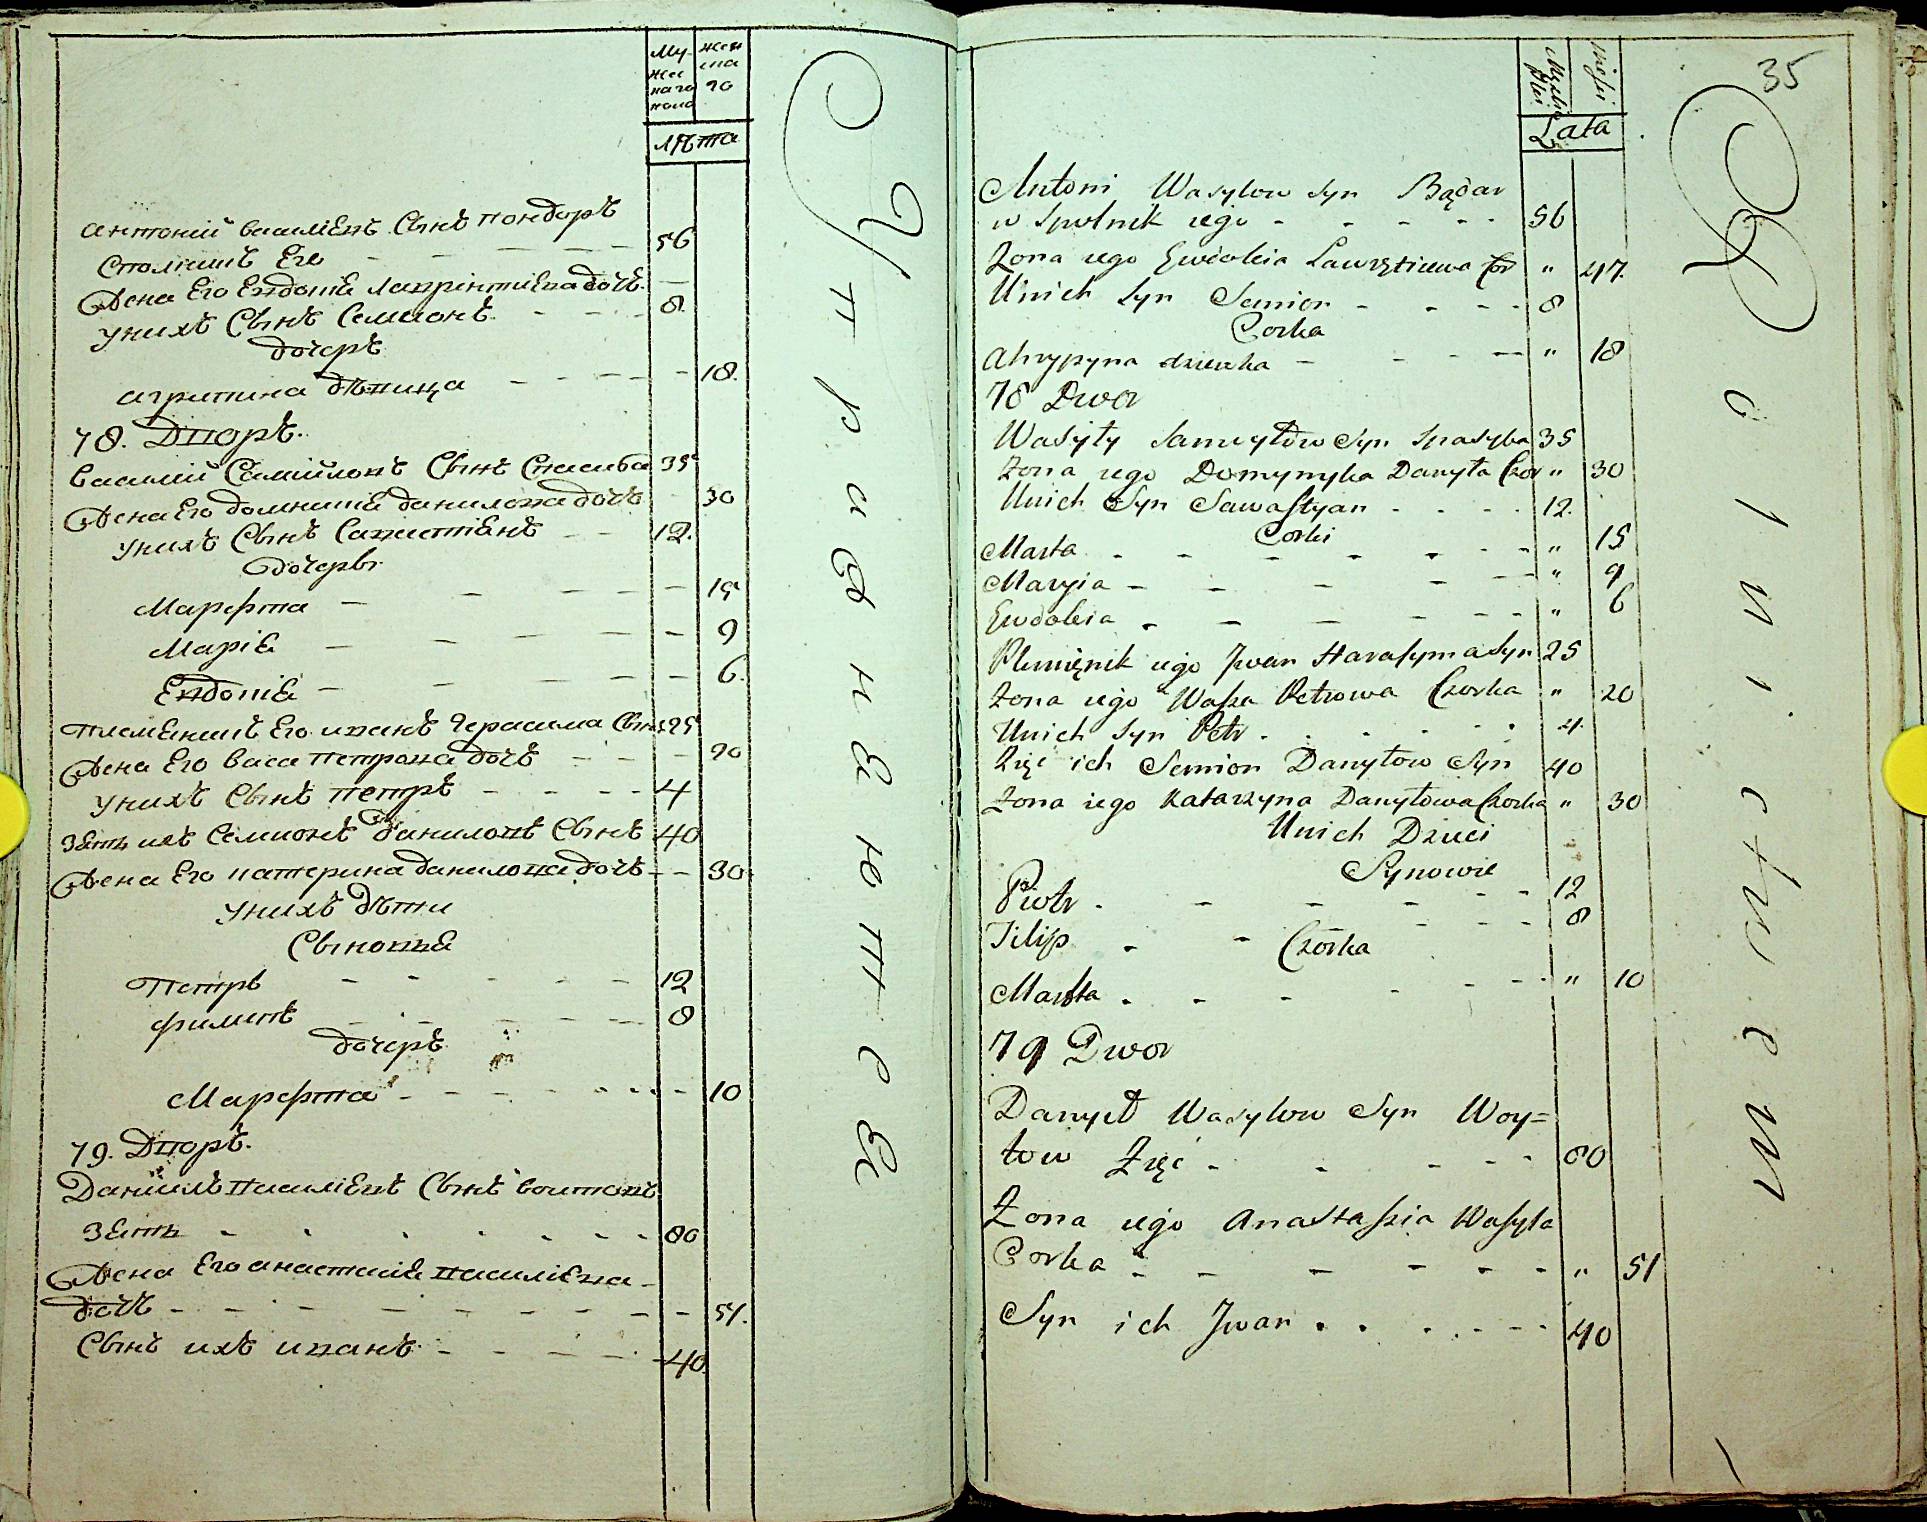 Му-
жес
каго
пола
жен
ска
го
Лѣта
Антоній василіевъ Сынъ бондоръ
Столникъ Его - - - 56
Жена Его Евдокіѣ Лаврѣнтиева дочъ. -
У нихъ Сынъ Семионъ. - - - 8.
дочеръ
агрипина дѣвица - - - - 18.
78. Дворъ.
василий Самойловъ Сынъ Спасиба 35
Жена Его домникиѣ данилова дочъ 30
У нихъ Сынъ Савистиѣнъ - - 12.
дочеры
Марфта - - - - - 15
Маріѣ - - - - - 9
Евдокіѣ - - - - - 6.
племѣникъ Его иванъ Герасима Сынъ 25
Жена Его васа петрова дочъ - - - 20
У нихъ Сынъ петръ - - - - 4
зѣть ихъ Семионъ данилова Сынъ 40
Жена Его катерина данилова дочъ - - 30
У нихъ дѣти
Сыновьѣ
Петръ - - - - - 12
филипъ - - - - - 8
дочеръ
Марфта - - - - - - 10
79. Дворъ.
Данiилъ василіевъ Сынъ воитовъ
зѣть - - - - - - 80
Жена Его анастасиѣ василіева -
дочъ - - - - - - - 51.
Сынъ ихъ иванъ - - - - 40.
У п р а ж н Е ю т с Е
35
Męzkiey płci
Lata
Antoni Wasylow syn Bądar
w Spolnik iego - - - - - 56
Żona iego Ewdokia Lawrętiewa Cor " 47.
Unich Syn Semion - - - - 8
Corka
Ahrypyna dziewka - - - - " 18
78 Dwor
Wasyły Samuyłow Syn Spasyba 35
Żona iego Domynyka Danyła Czor " 30
Unich Syn Sawastyan - - - - 12.
Corki
Marta - - - - - - " 15
Maryia - - - - - " 9
Ewdokia - - - - - " 6
Plemięnik iego Jwan Harasyma Syn 25
Żona iego Wasza Petrowa Czorka " 20
Unich Syn Petr . . . . . 4.
Zięć ich Semion Danyłow Syn 40
Żona iego Katarzyna Danyłowa Czorka " 30
Unich Dzieci
Synowie
Piotr - - - - - 12
Filip - - - - - 8
Czorka
Marta - - - - - - " 10
79 Dwor
Danyeł Wasylow Syn Woy=
tow Zięć - - - - - 80
Żona iego Anastaszia Wasyla
Corka - - - - - - " 51
Syn ich Jwan . . . . - - 40